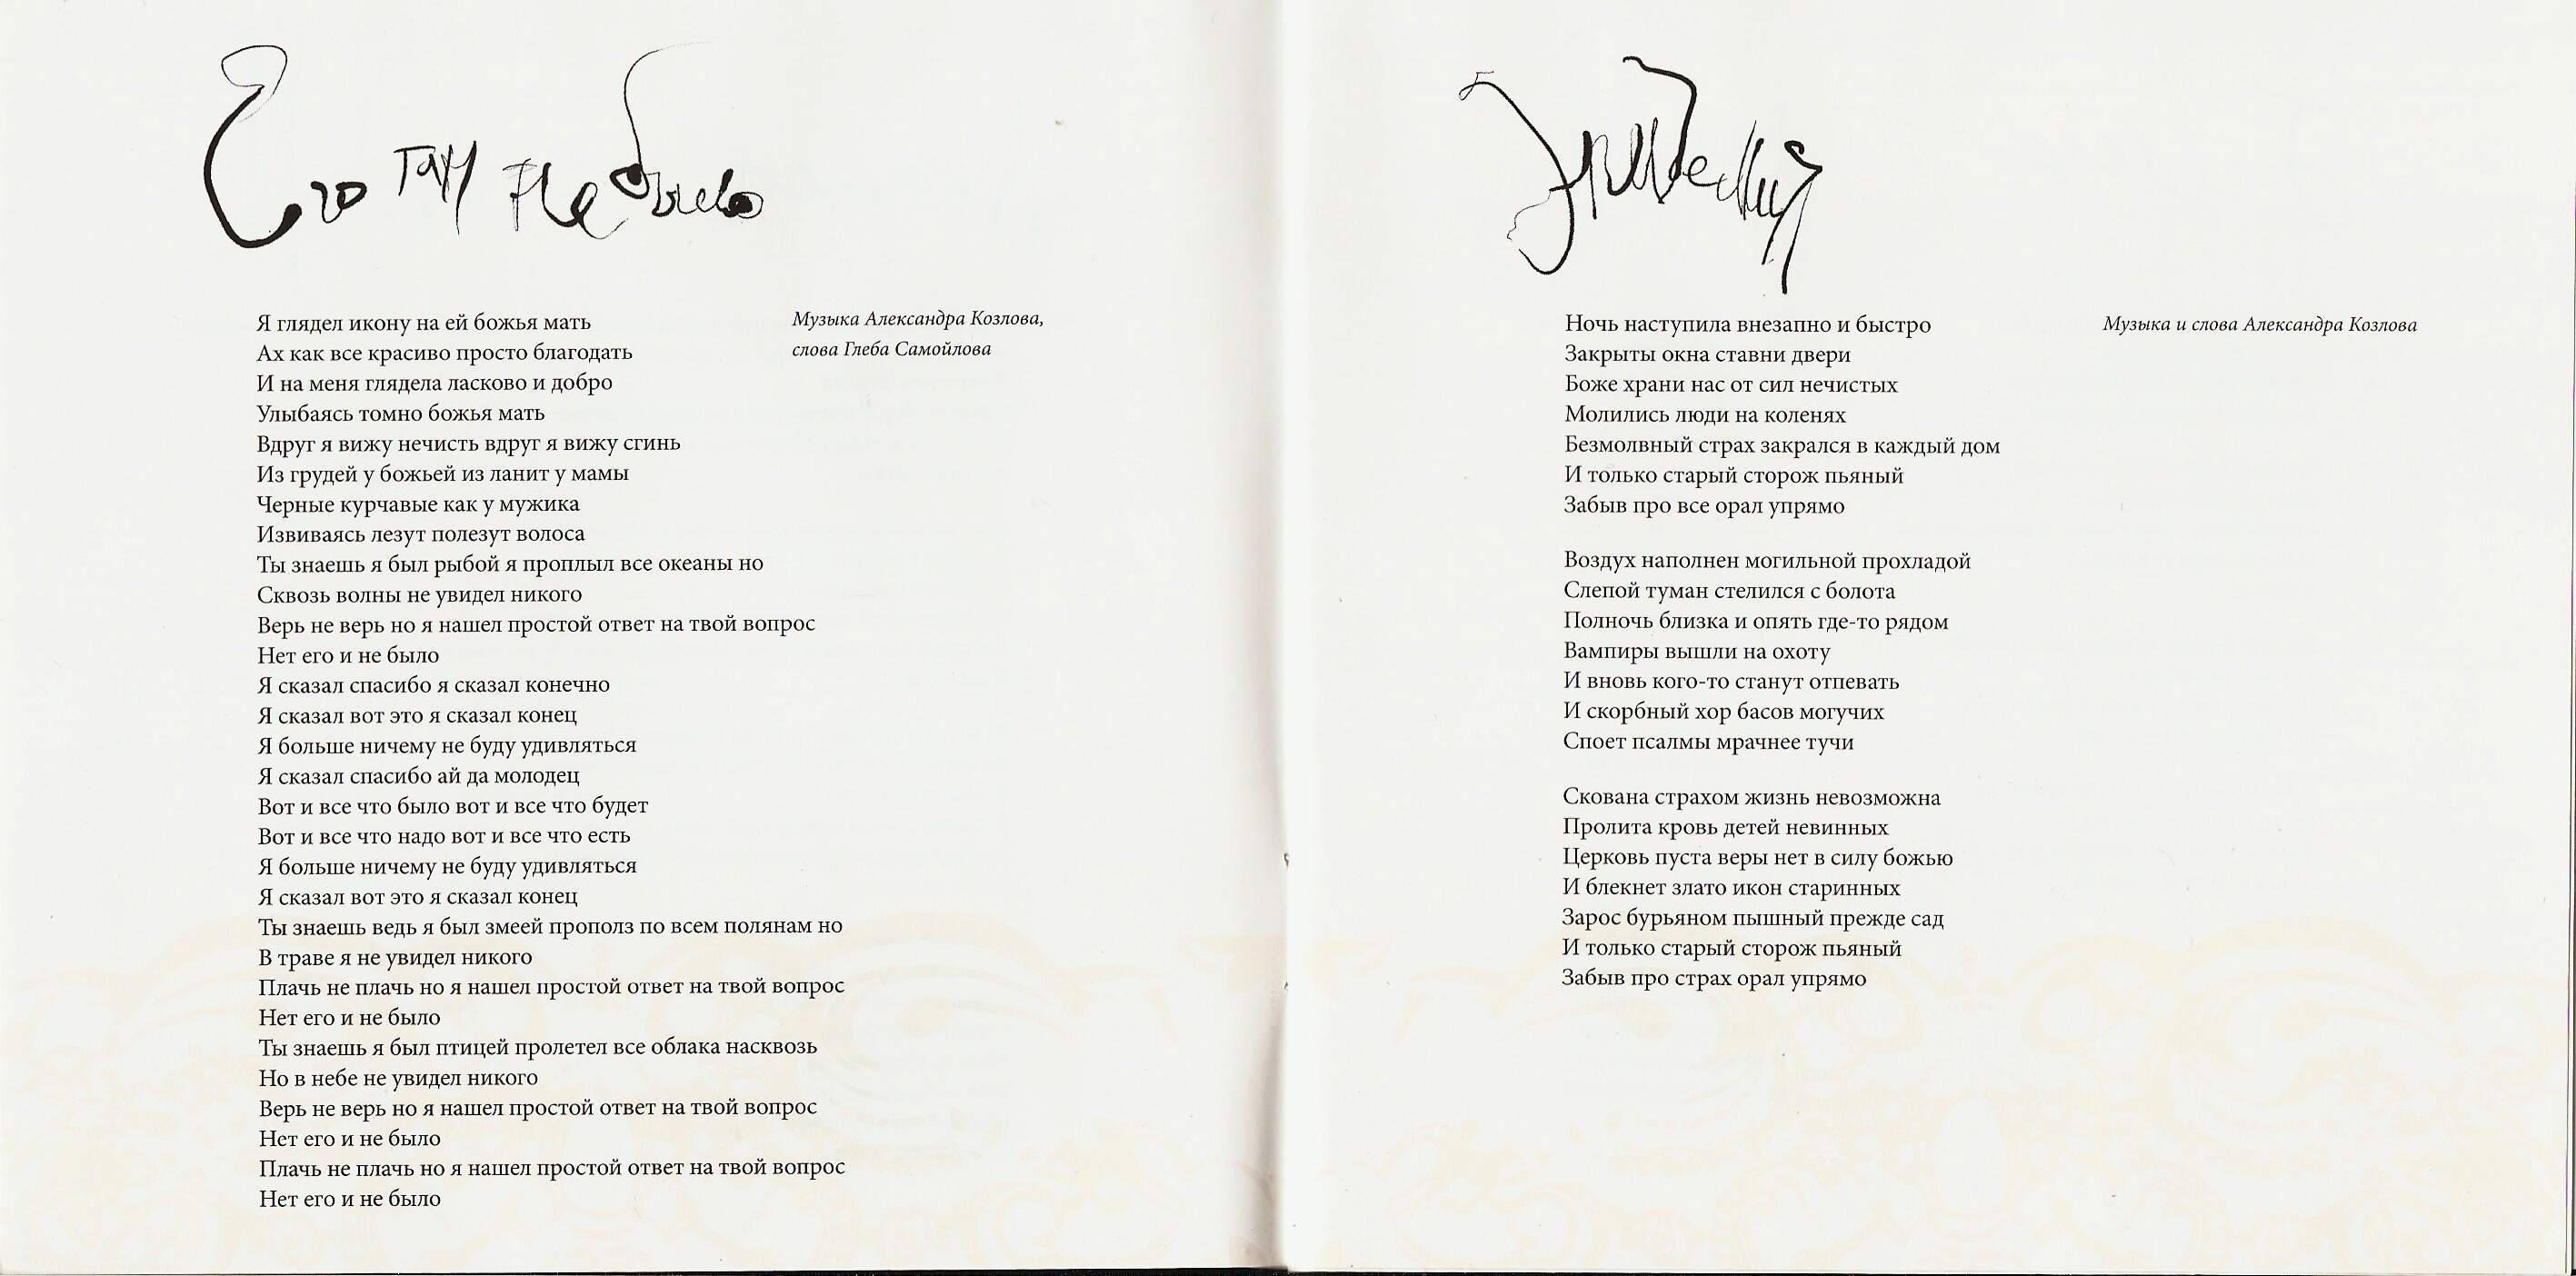 Его там не было
Я глядел икону на ей божья мать
Ах как все красиво просто благодать
И на меня глядела ласково и добро
Улыбаясь томно божья мать
Вдруг я вижу нечисть вдруг я вижу сгинь
Из грудей у божьей из ланит у мамы
Черные курчавые как у мужика
Извиваясь лезут полезут волоса
Ты знаешь я был рыбой я проплыл все океаны но
Сквозь волны не увидел никого
Верь не верь но я нашел простой ответ на твой вопрос
Нет его и не было
Я сказал спасибо я сказал конечно
Я сказал вот это я сказал конец
Я больше ничему не буду удивляться
Я сказал спасибо ай да молодец
Вот и все что было вот и все что будет
Вот и все что надо вот и все что есть
Я больше ничему не буду удивляться
Я сказал вот это я сказал конец
Ты знаешь ведь я был змеей прополз по всем полянам но
В траве я не увидел никого
Плачь не плачь но я нашел простой ответ на твой вопрос
Нет его и не было
Ты знаешь я был птицей пролетел все облака насквозь
Но в небе не увидел никого
Верь не верь но я нашел простой ответ на твой вопрос
Нет его и не было
Плачь не плачь но я нашел простой ответ на твой вопрос
Нет его и не было
Музыка Александра Козлова,
слова Глеба Самойлова
Ночь наступила внезапно и быстро
Закрыты окна ставни двери
Боже храни нас от сил нечистых
Молились люди на коленях
Безмолвный страх закрался в каждый дом
И только старый сторож пьяный
Забыв про все орал упрямо
Воздух наполнен могильной прохладой
Слепой туман стелился с болота
Полночь близка и опять где-то рядом
Вампиры вышли на охоту
И вновь кого-то станут отпевать
И скорбный хор басов могучих
Споет псалмы мрачнее тучи
Скована страхом жизнь невозможна
Пролита кровь детей невинных
Церковь пуста веры нет в силу божью
И блекнет злато икон старинных
Зарос бурьяном пышный прежде сад
И только старый сторож пьяный
Забыв про страх орал упрямо
Музыка и слова Александра Козлова